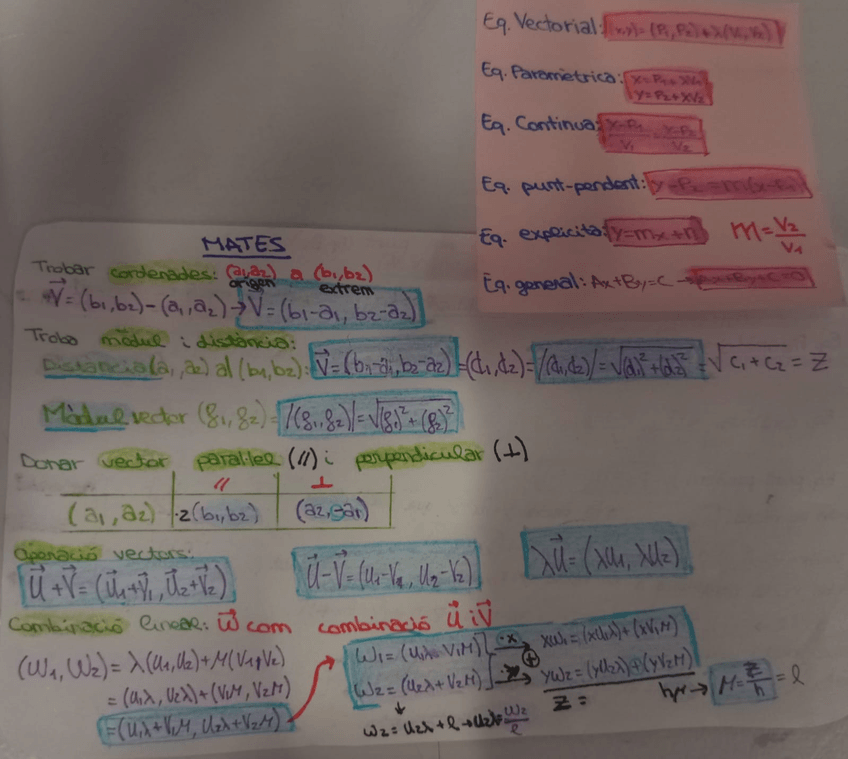 Eq. Vectorial: (x,y) = (P₁, P₂) + λ(V₁, V₂)
Eq. Parametrica: x = P₁ + λV₁
y = P₂ + λV₂
Eq. Continua: x-P₁/V₁ = y-P₂/V₂
Eq. punt-pendent: y-P₂ = m(x-P₁)
Eq. explicita: y = mx + n m = V₂/V₁
Eq. general: Ax + By = C → Ax + By + C = 0
MATES
Trobar cordenades: (a₁, a₂) a (b₁, b₂)
origen extrem
V⃗ = (b₁, b₂) - (a₁, a₂) → V⃗ = (b₁-a₁, b₂-a₂)
Troba mòdul i distància:
Distància (a₁, a₂) al (b₁, b₂): V⃗ = (b₁-a₁, b₂-a₂) = (d₁, d₂) = /(d₁, d₂)/ = √(d₁)² + (d₂)² = √C₁ + C₂ = Z
Mòdul vector (g₁, g₂) = /(g₁, g₂)/ = √(g₁)² + (g₂)²
Donar vector paral·lel (//) i perpendicular (⊥)
// ⊥
(a₁, a₂) ·2(b₁, b₂) (a₂, -a₁)
Operació vectors:
U⃗ + V⃗ = (U⃗₁ + V⃗₁, U⃗₂ + V⃗₂) U⃗ - V⃗ = (U₁ - V₁, U₂ - V₂) λU⃗ = (λU₁, λU₂)
Combinació lineal: w⃗ com combinació U⃗ i V⃗
(W₁, W₂) = λ(U₁, U₂) + M(V₁, V₂)
= (U₁λ, U₂λ) + (V₁M, V₂M)
= (U₁λ + V₁M, U₂λ + V₂M)
W₁ = (U₁λ + V₁M) ·x xW₁ = (xU₁λ) + (xV₁M)
W₂ = (U₂λ + V₂M) yW₂ = (yU₂λ) + (yV₂M)
Z = hM → M = Z/h = l
W₂ = U₂λ + l → U₂λ = W₂/l